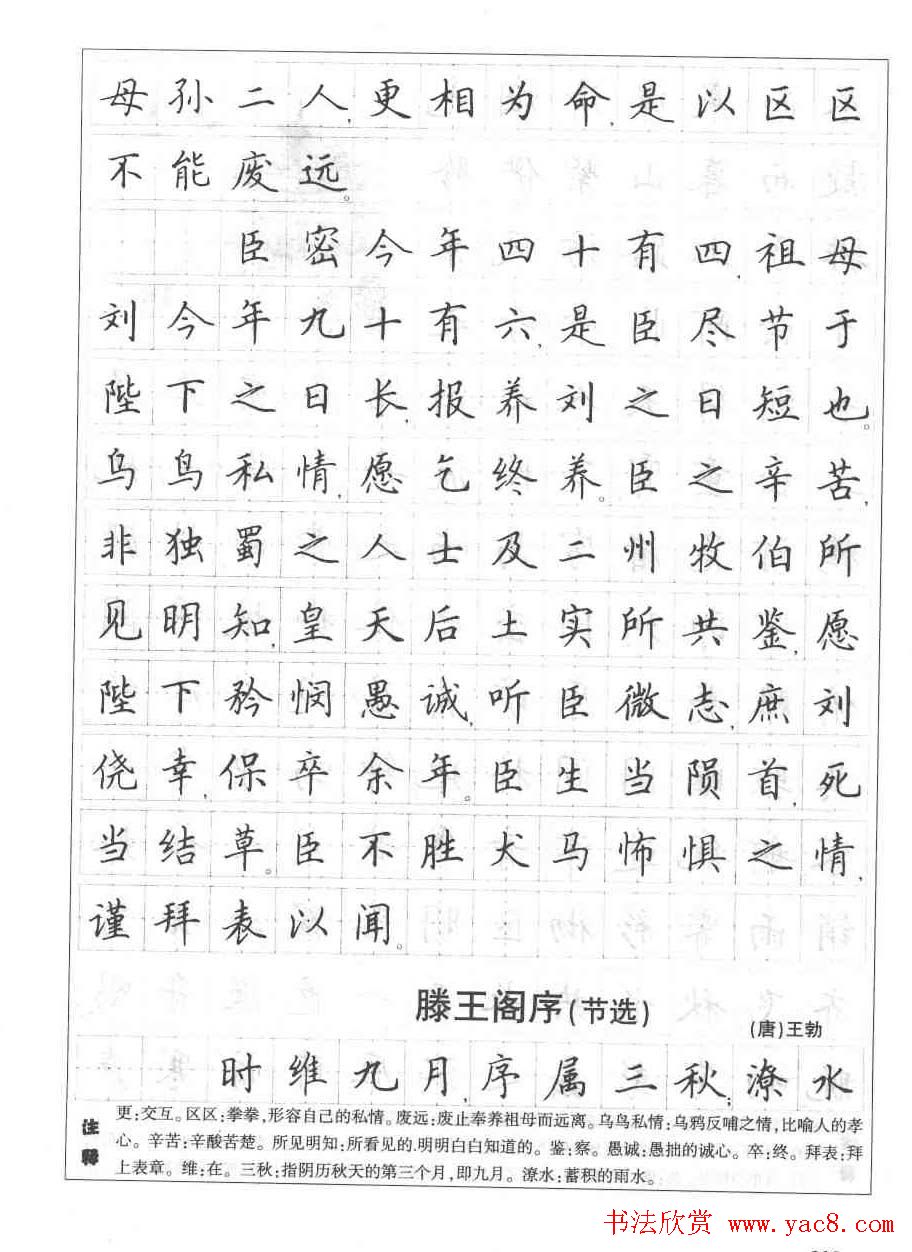 母孙二人,更相为命,是以区区
不能废远。
臣密今年四十有四,祖母
刘今年九十有六,是臣尽节于
陛下之日长,报养刘之日短也。
乌鸟私情,愿乞终养。臣之辛苦,
非独蜀之人士及二州牧伯所
见明知,皇天后土实所共鉴,愿
陛下矜悯愚诚,听臣微志,庶刘
侥幸,保卒余年。臣生当陨首,死
当结草。臣不胜犬马怖惧之情,
谨拜表以闻。
滕王阁序(节选)
(唐)王勃
时维九月,序属三秋;潦水
注释
更:交互。区区:拳拳,形容自己的私情。废远:废止奉养祖母而远离。乌鸟私情:乌鸦反哺之情,比喻人的孝
心。辛苦:辛酸苦楚。所见明知:所看见的.明明白白知道的。鉴:察。愚诚:愚拙的诚心。卒:终。拜表:拜
上表章。维:在。三秋:指阴历秋天的第三个月,即九月。潦水:蓄积的雨水。
书法欣赏 www.yac8.com